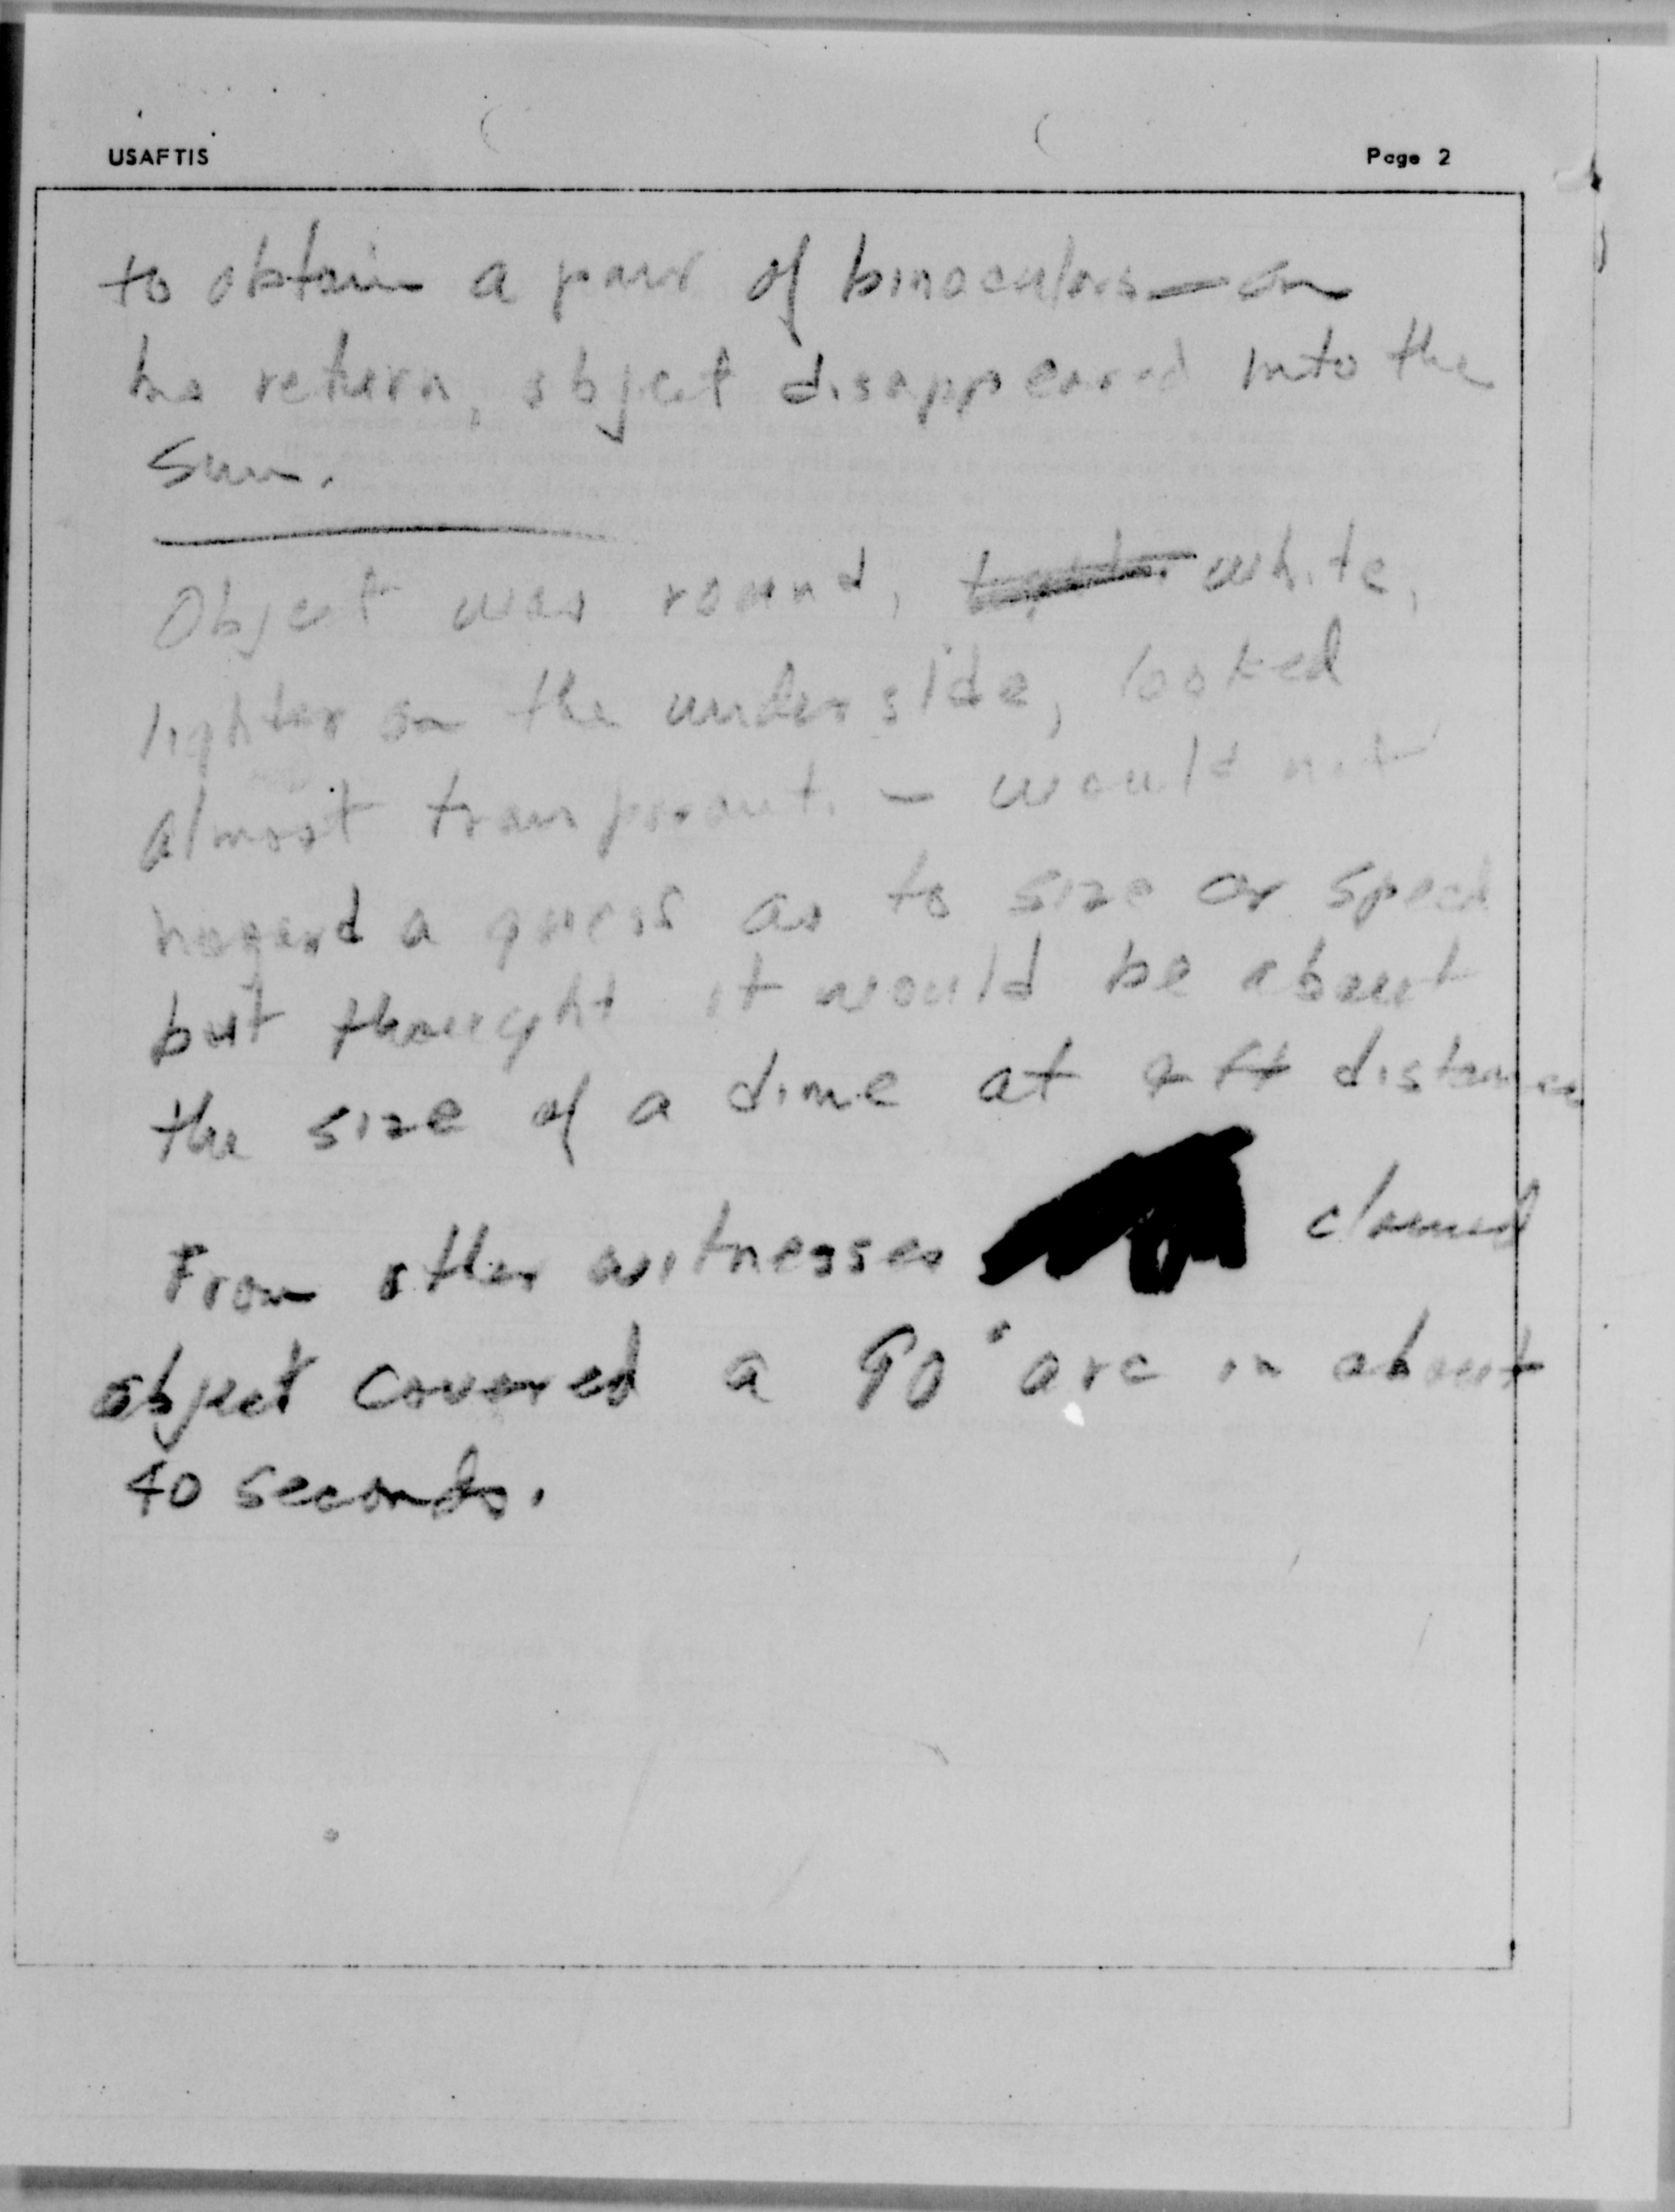 USAFTIS
Page 2
to obtain a pair of binoculars — on
his return, object disappeared into the
sun.
Object was round, white,
lighter on the underside, looked
almost transparent. — would not
hazard a guess as to size or speed
but thought it would be about
the size of a dime at ft distance
From other witnesses claimed
object covered a 90° arc in about
40 seconds.